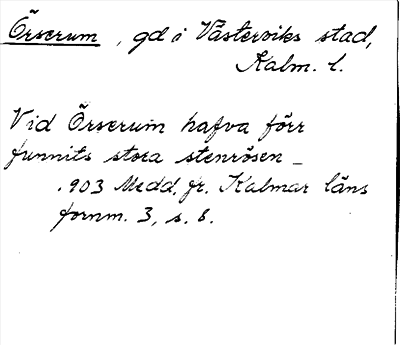 Örserum, gd i Västerviks stad,
Kalm. l.
Vid Örserum hafva förr
funnits stora stenrösen _
1903 Medd. fr. Kalmar läns
fornm. 3, s. 6.